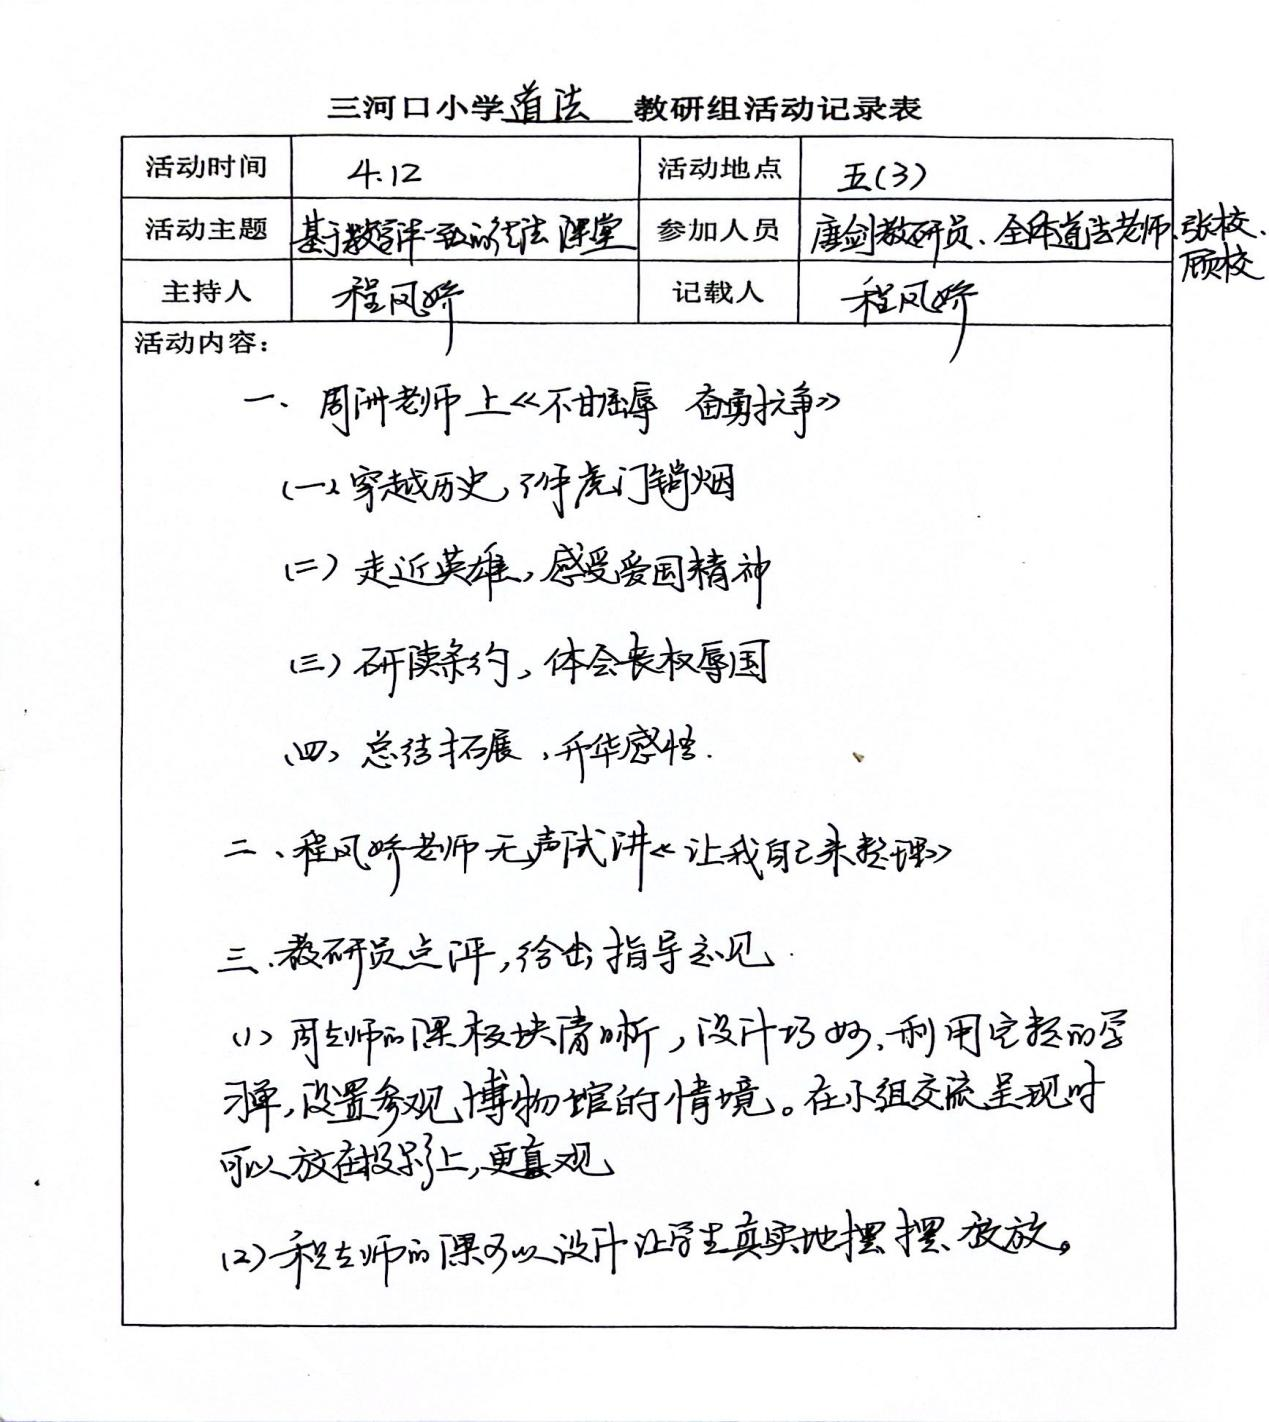 三河口小学道法 教研组活动记录表
活动时间 4.12 活动地点 五(3)
活动主题 基于教学评一致的道法课堂 参加人员 唐剑教研员、全体道法老师、张校、
顾校
主持人 程凤娇 记载人 程凤娇
活动内容：
一、周洲老师上《不甘屈辱 奋勇抗争》
(一)穿越历史，了解虎门销烟
(二)走近英雄，感受爱国精神
(三)研读条约，体会丧权辱国
(四)总结拓展，升华感悟.
二、程凤娇老师无声试讲《让我自己来整理》
三、教研员点评，给出指导意见.
(1)周老师的课板块清晰，设计巧妙、利用完整的学
习单，设置参观博物馆的情境。在小组交流呈现时
可以放在投影上，更直观
(2)程老师的课可以设计让学生真实地摆摆、放放。